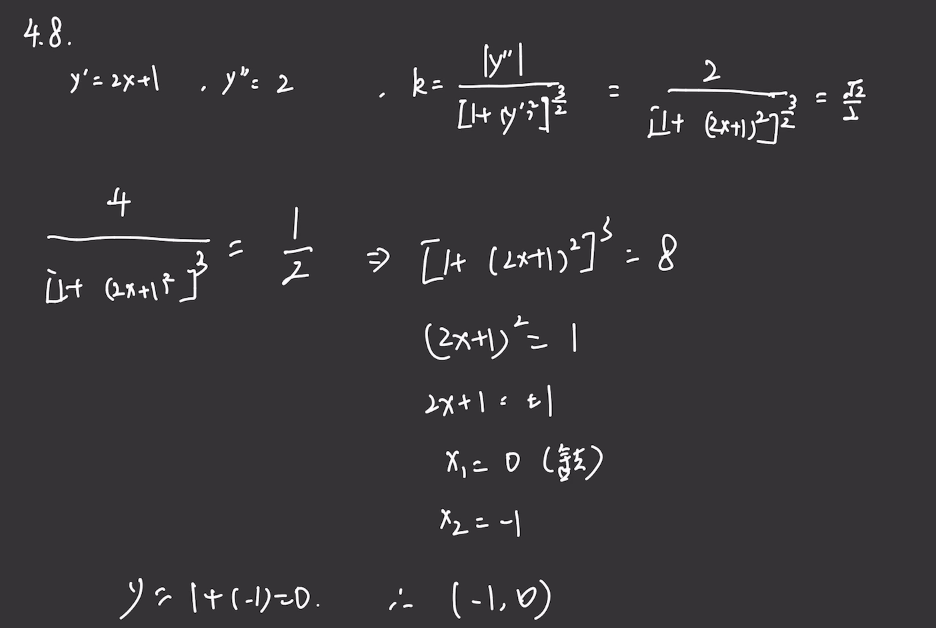 4.8.
y' = 2x+1 , y" = 2 , k = |y"| / [1+(y')²]^{3/2} = 2 / [1+(2x+1)²]^{3/2} = √2/2
4 / [1+(2x+1)²]³ = 1/2 ⇒ [1+(2x+1)²]³ = 8
(2x+1)² = 1
2x+1 = ±1
x₁ = 0 (舍去)
x₂ = -1
y = 1+(-1)=0. ∴ (-1,0)